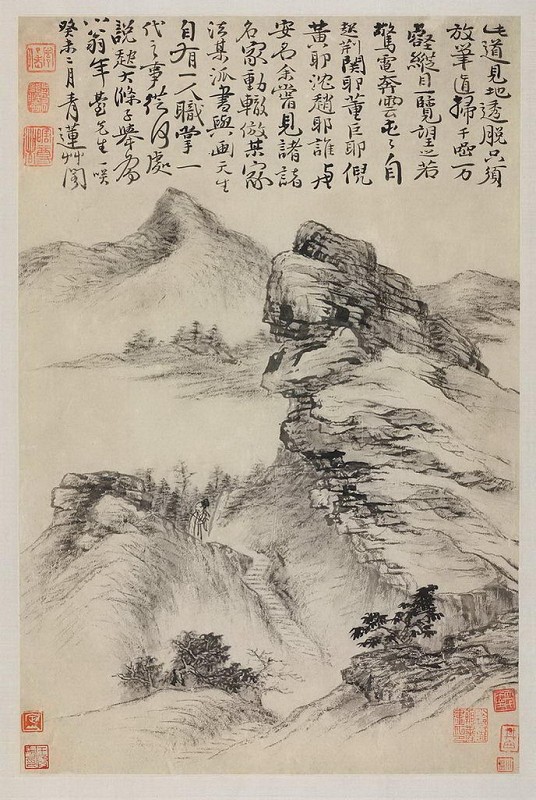 此道見地透脫只須
放筆直掃千巖万
壑縱目一覽望之若
驚電奔雲屯〻自
起荊関耶董巨耶倪
黃耶沈趙耶誰与
安名余嘗見諸諸
名家動輒倣某家
法某派書與画天生
自有一人職掌一
代之事從何處
說起大滌子舉為
翁年臺先生一咲
癸未二月青蓮艸閣